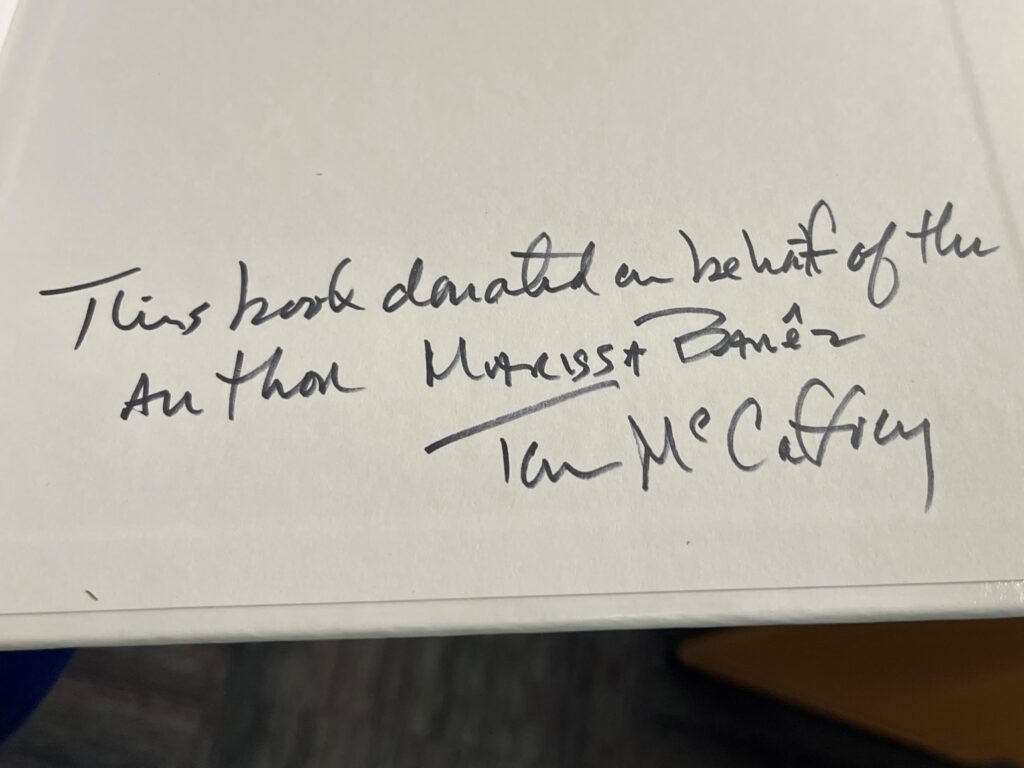 This book donated on behalf of the
Author Marissa Banêz
Tom McCaffrey